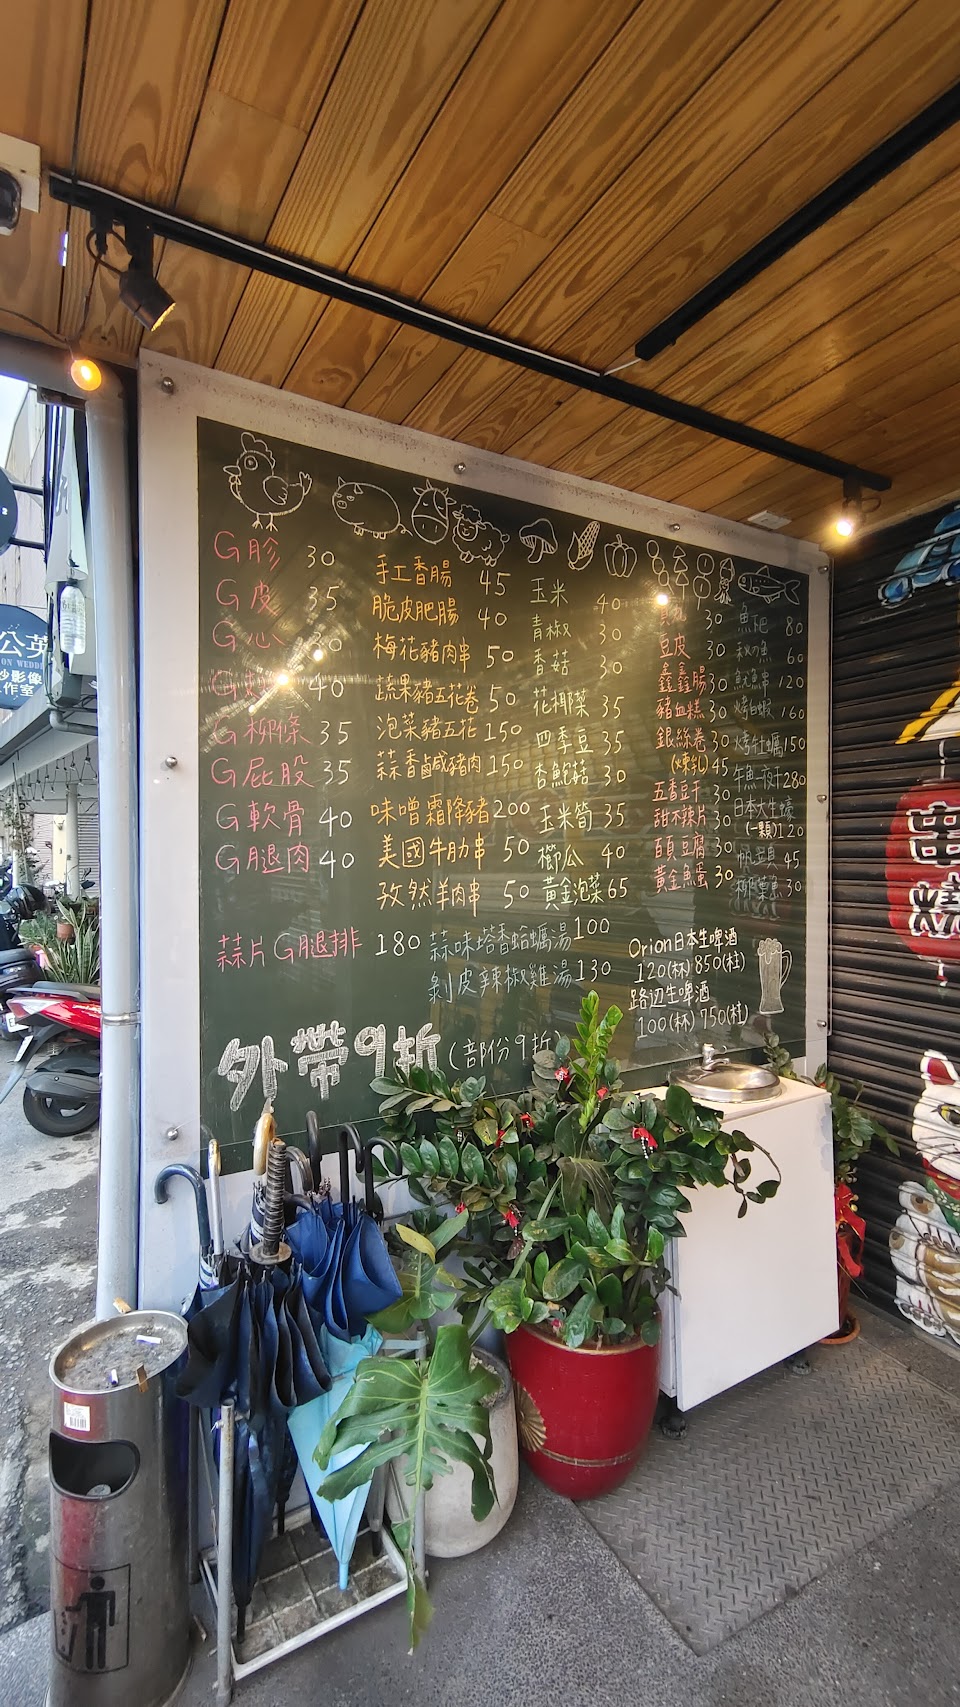 G胗 30
G皮 35
G心 30
G 40
G柳條 35
G屁股 35
G軟骨 40
G腿肉 40
手工香腸 45
脆皮肥腸 40
梅花豬肉串 50
蔬果豬五花卷 50
泡菜豬五花 150
蒜香鹹豬肉 150
味噌霜降豬 200
美國牛肋串 50
孜然羊肉串 50
玉米 40
青椒 30
香菇 30
花椰菜 35
四季豆 35
杏鮑菇 30
玉米筍 35
櫛瓜 40
黃金泡菜 65
30
豆皮 30
鑫鑫腸 30
豬血糕 30
銀絲卷 30
(煉乳) 45
五香豆干 30
甜不辣片 30
百頁豆腐 30
黃金魚蛋 30
魚下巴 80
秋の魚 60
魷魚串 120
烤白蝦 160
烤牡蠣 150
午魚一夜干 280
日本大生蠔
(一顆) 120
45
30
蒜片G腿排 180
蒜味塔香蛤蠣湯 100
剝皮辣椒雞湯 130
Orion日本生啤酒
120(杯) 850(柱)
路辺生啤酒
100(杯) 750(柱)
外帶9折 (部份9折)
公英
ON WEDD
紗影像
工作室